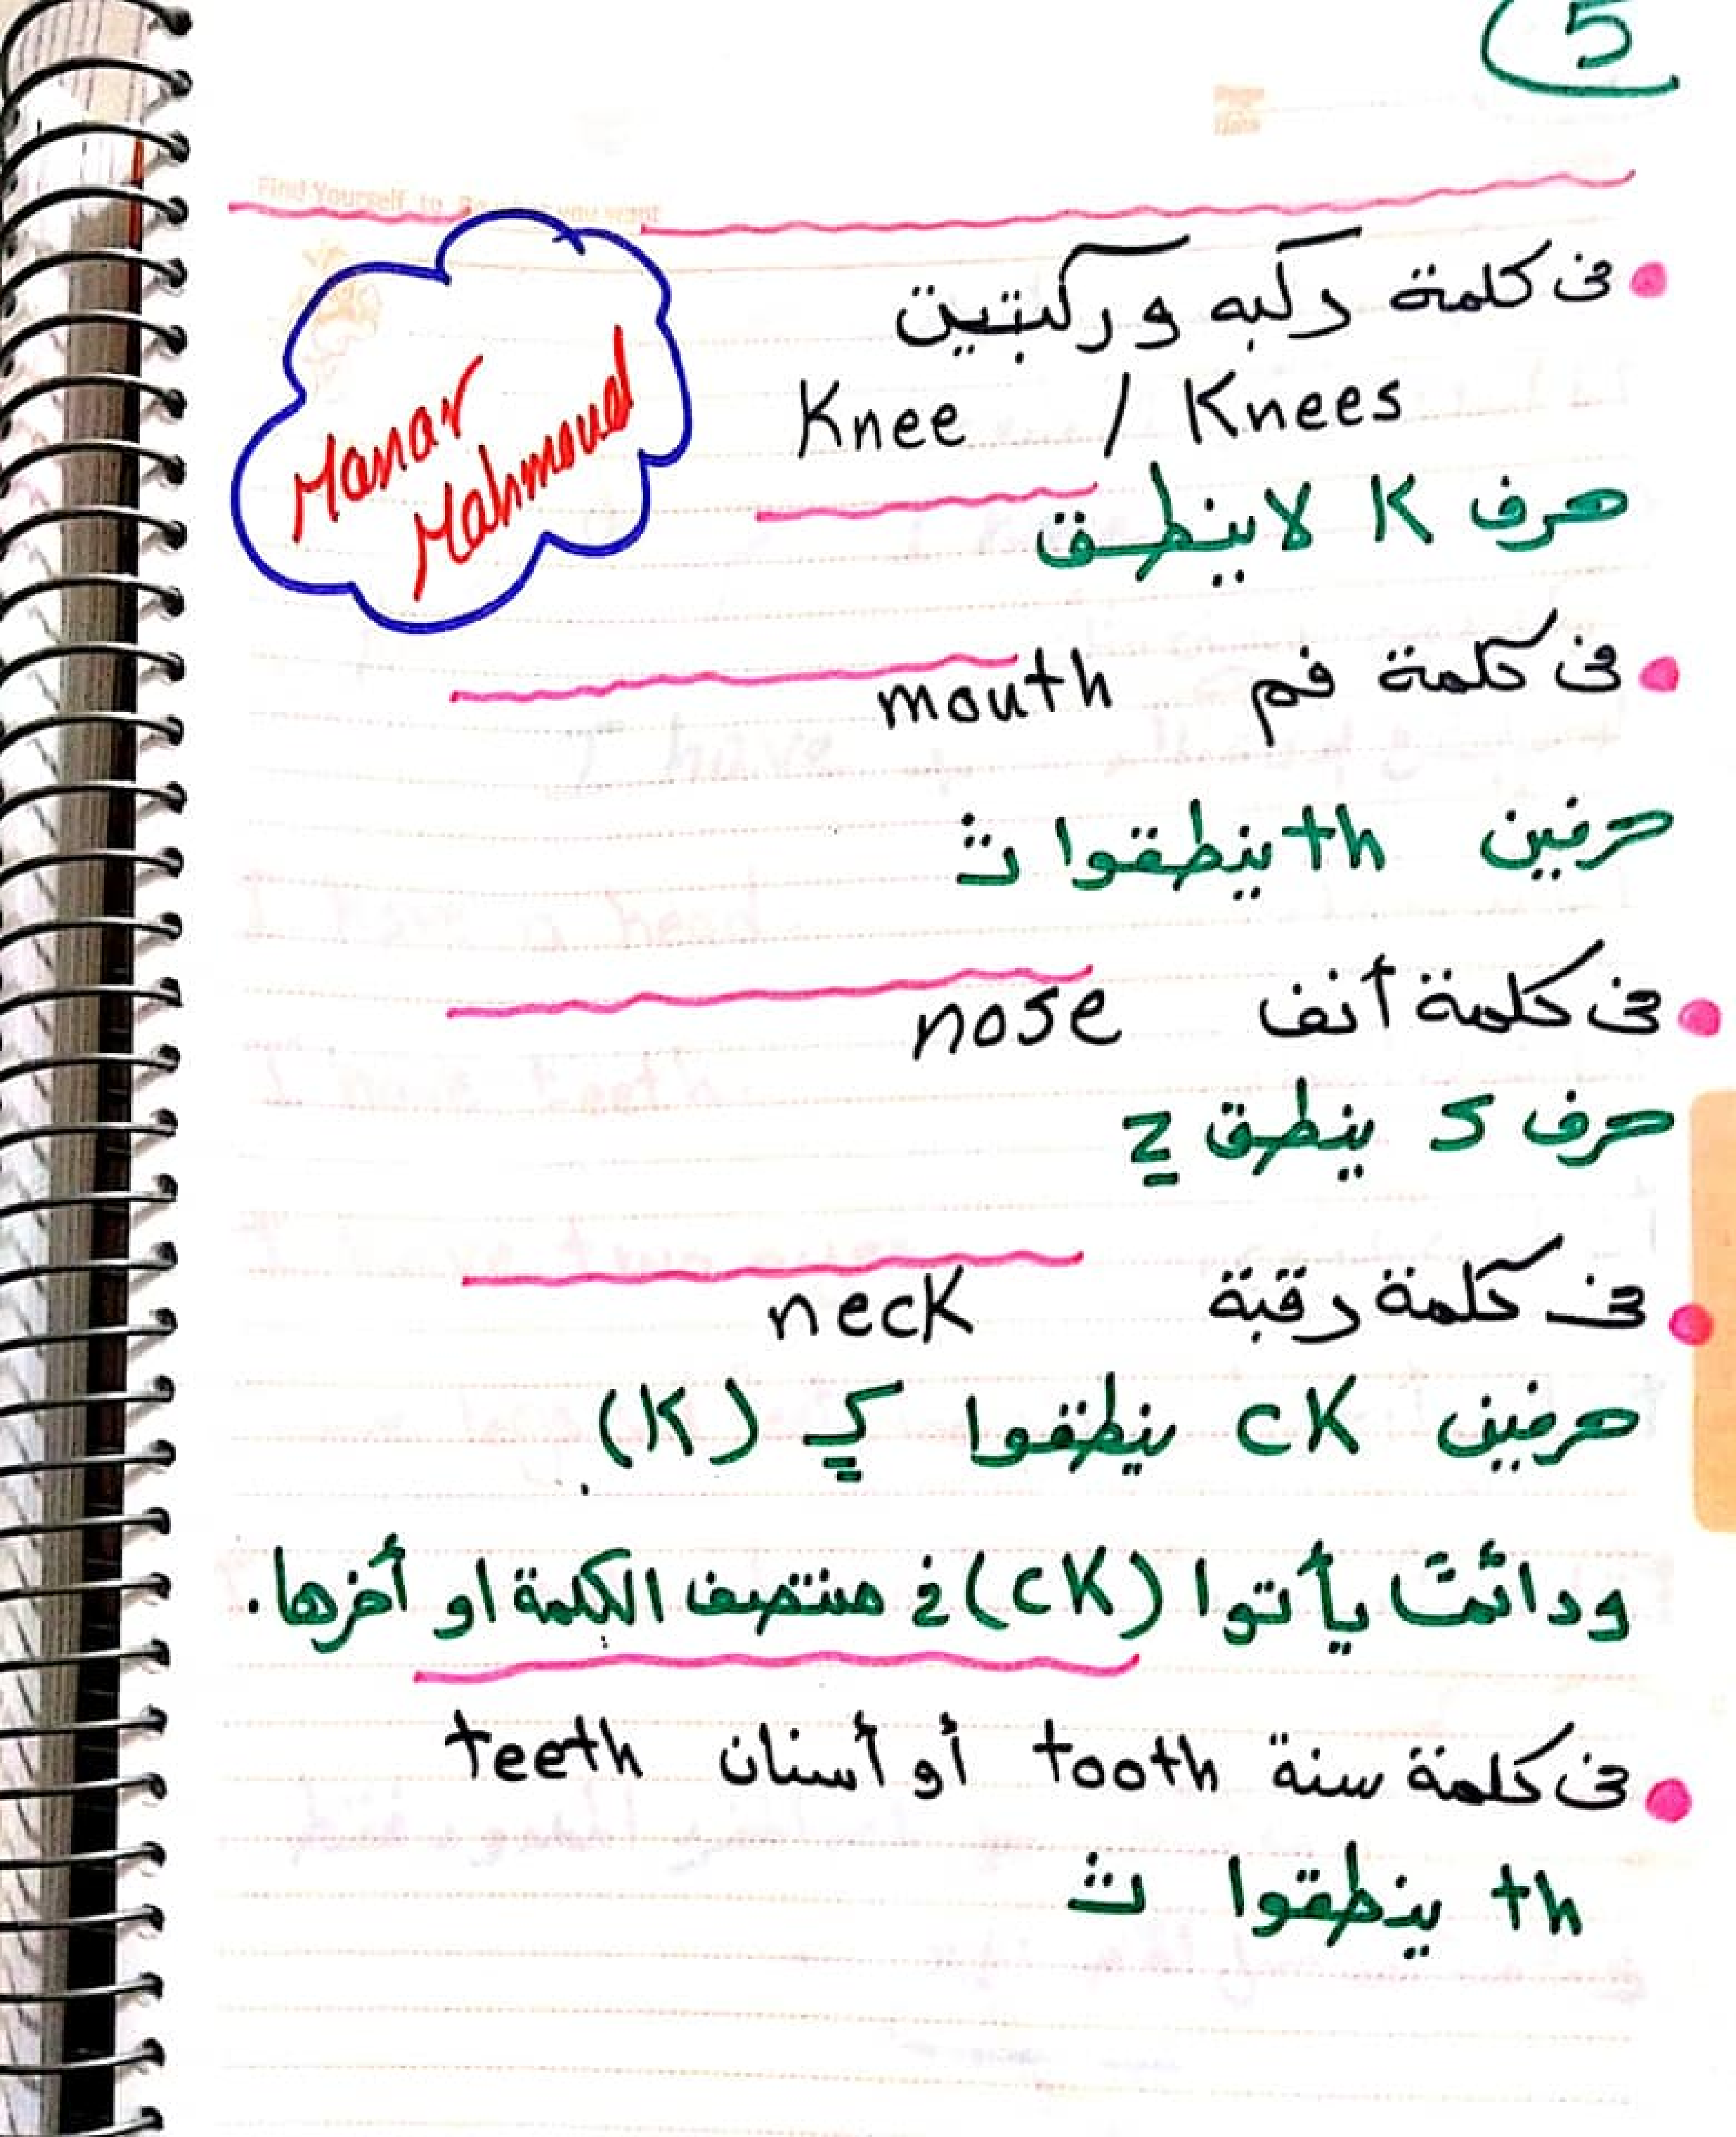 5
Page
Date
Find Yourself to Be what you want
Manar
Mahmoud
فى كلمة ركبه و ركبتين
Knee / Knees
حرف K لا ينطق
فى كلمة فم mouth
حرفين th ينطقوا ث
فى كلمة أنف nose
حرف s ينطق z
فى كلمة رقبة neck
حرفين cK ينطقوا كـ (K)
ودائمًا يأتوا (cK) في منتصف الكلمة او أخرها.
فى كلمة سنة tooth أو أسنان teeth
th ينطقوا ث